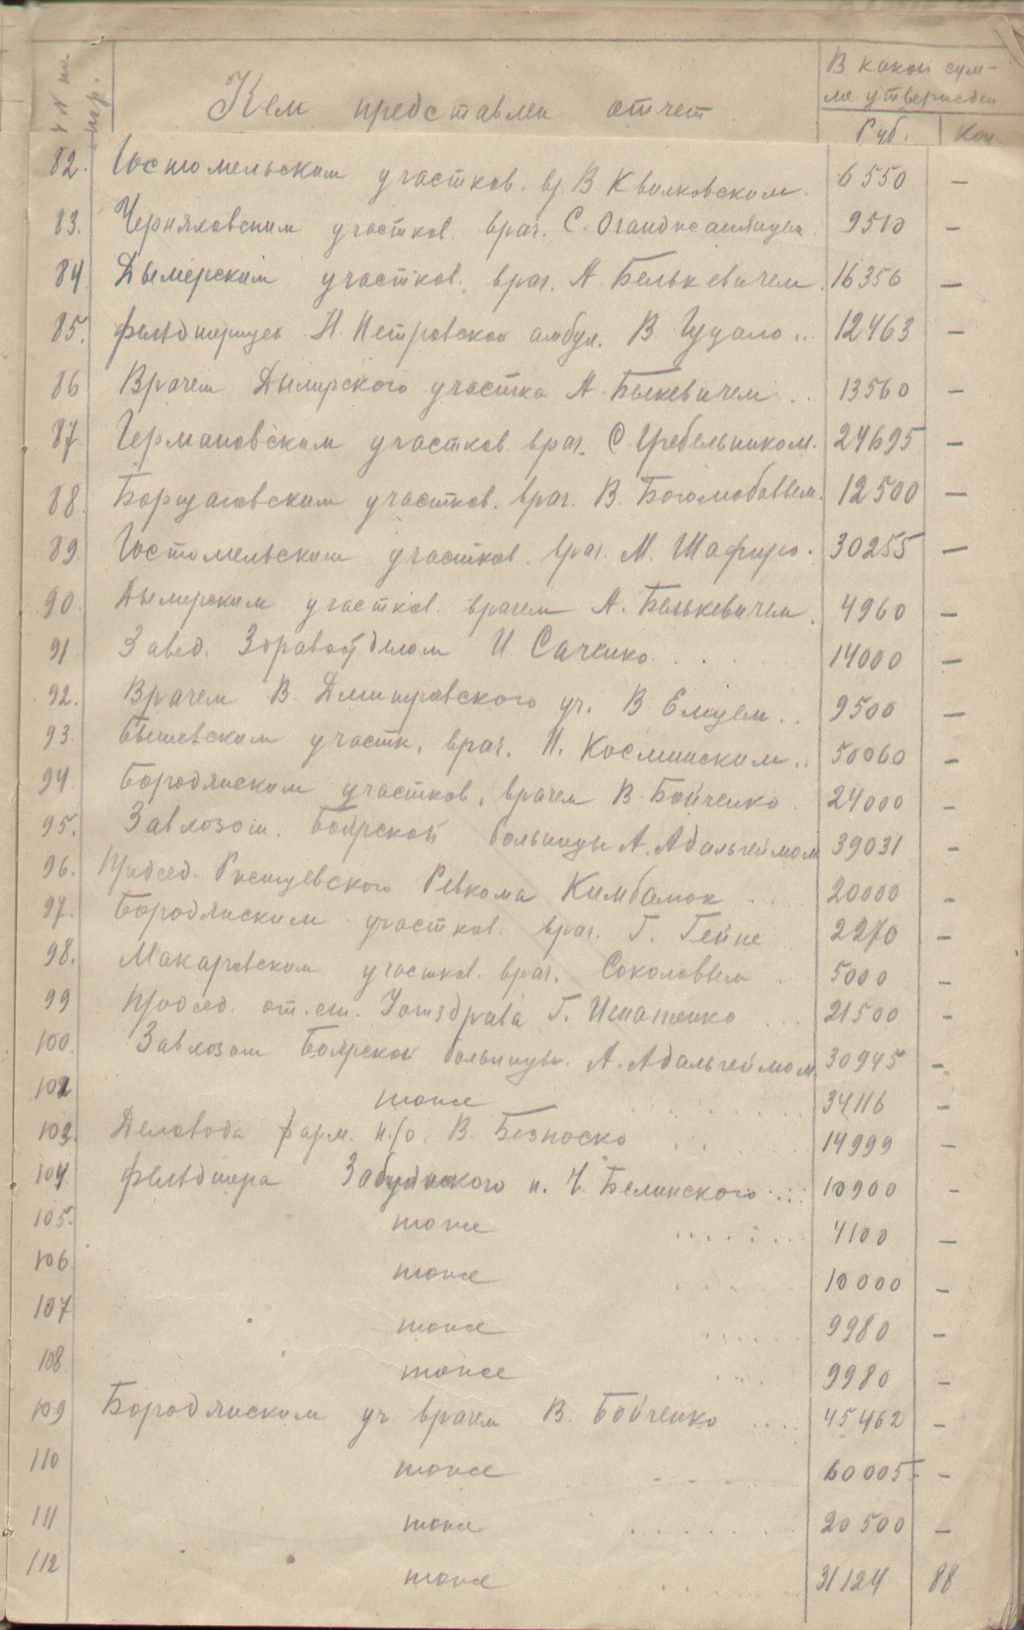 №№ по пор. Кем представлен отчет В какой сумме утвержден
Руб. Коп
82. Гостомельским участков. вр. В. Квилковским. 6550 —
83. Черняховским участков. врач. С. 9510 —
84 Дымерским участков. врач. А. Белькевичем. 16350 —
85. Фельдшерицей Н. Петровской амбул. В. Цудло .. 12463 —
86 Врачем Дымерского участка А. Белькевичем .. 13560 —
87. Германовским участков. врач. С. Гребельником. 24695 —
88 Борщаговским участков. врач. В. Боголюбовым. 12500 —
89. Гостомельским участков. врач. М. Шафиро. 30255 —
90. Дымерским участков. врачем А. Белькевичем. 4960 —
91 Завед. Здравотделом И Саченко . . 14000 —
92. Врачем В. Дмитровского уч. В Емцем .. 9500 —
93. Бышевским участк. врач. И. Косминским .. 50060 —
94 Бородянским участков. врачем В. Бойченко . 24000 —
95. Завхозом. Боярской больницы А. Адальгеймом 39031 —
96. Председ. Ревкома Кимбалюк .... 20000 —
97. Бородянским участков. врач. Г. Гейне 2270 —
98. Макаровским участков. врач. Соколовым . 5000 —
99 Председ. от. см. Г. Игнатенко ... 21500 —
100. Завхозом Боярской больницы. А. Адальгеймом. 30945 —
102 тоже ...... 34116 —
103 Деловода фарм. п/о. В. Безноско . . 14999 —
104 Фельдшера п. Ч. Белинского .... 10900 —
105. тоже ...... 4100 —
106 тоже .... 10000 —
107 тоже .... 9980 —
108 тоже ... 9980 —
109 Бородянским уч. врачем В. Бойченко .... 45462 —
110 тоже 60005 —
111 тоже ...... 20500 —
112 тоже ..... 31124 88